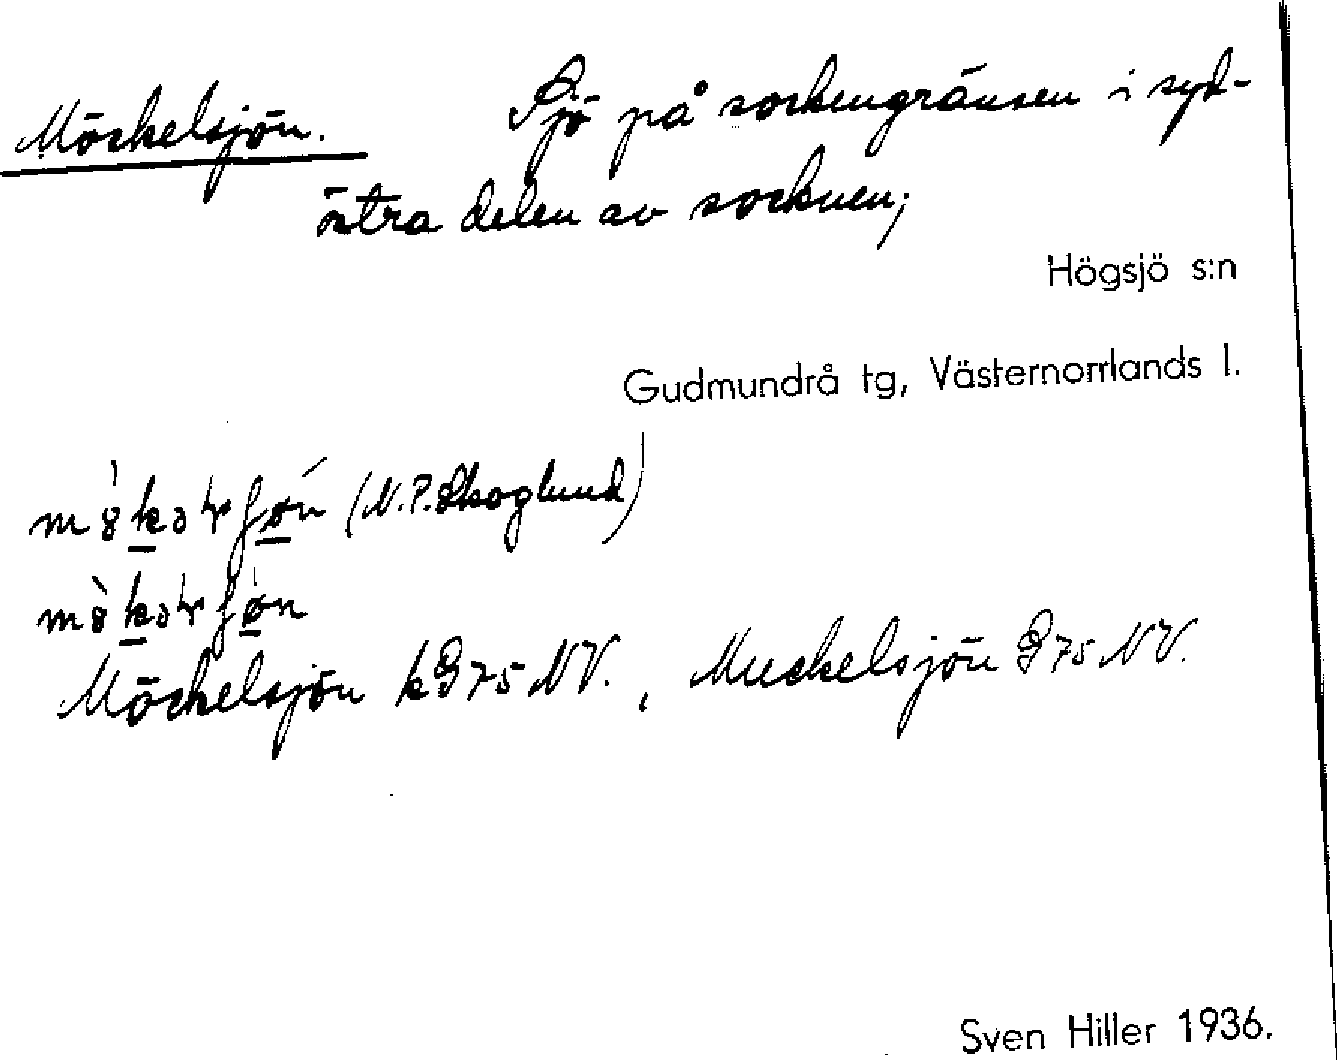 Möckelsjön. Sjö på sockengränsen i syd-
östra delen av socknen;
Högsjö s:n
Gudmundrå tg, Västernorrlands l.
(N.P. Skoglund)
Möckelsjön k G 75 NV., Muckelsjön G 75 NV.
Sven Hiller 1936.